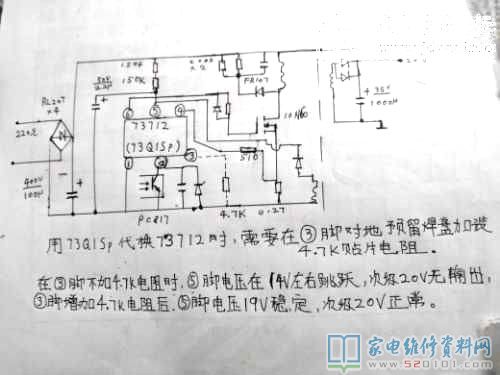 150k
150K
FR107
RL207
×4
10N60
220V
73712
(73Q1Sp)
510
35V
1000μ
400V
100μ
PC817
4.7K
0.27
用73Q1Sp代换73712时,需要在③脚对地预留焊盘加装
4.7K贴片电阻。
在③脚不加4.7K电阻时,⑤脚电压在14V左右跳跃,次级20V无输出,
③脚增加4.7K电阻后,⑤脚电压19V稳定,次级20V正常。
家电维修资料网
www.520101.com